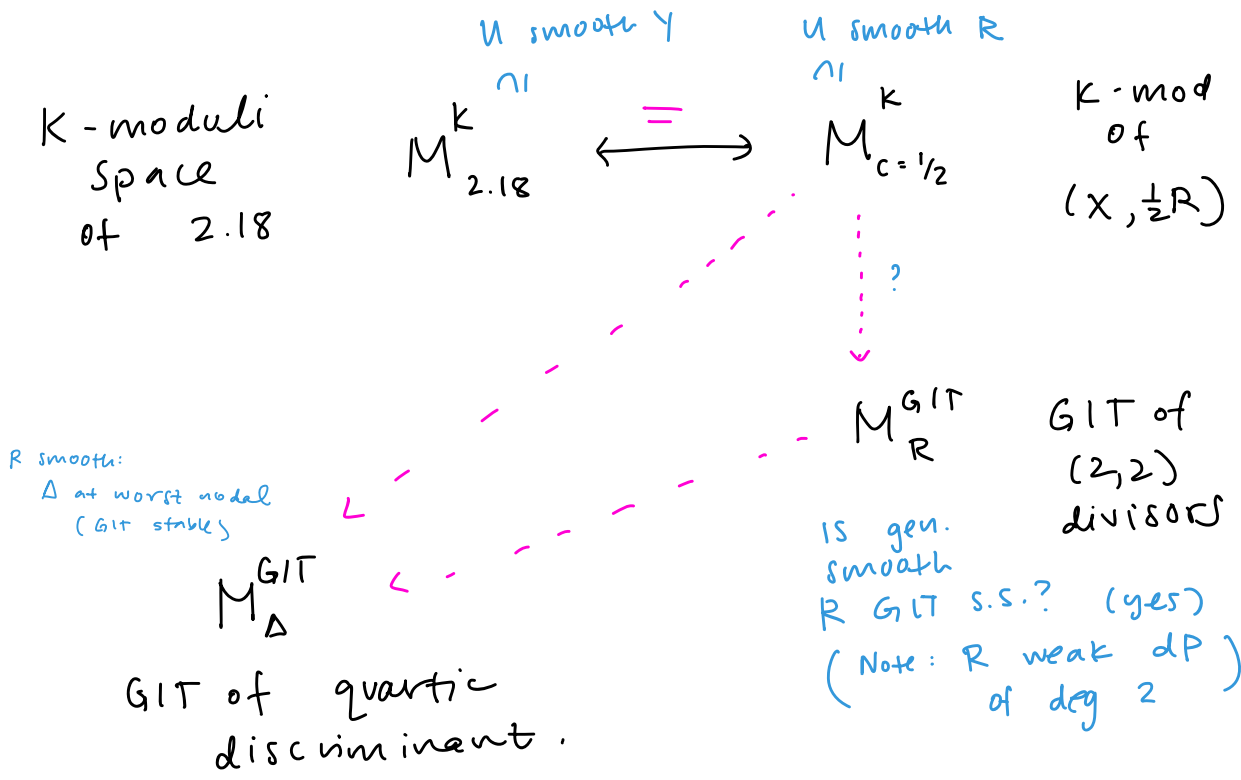 U smooth Y
U smooth R
∩|
∩|
K-moduli
space
of 2.18
M^K_{2.18}
=
M^K_{c=1/2}
K-mod
of
(X, ½R)
?
M^{GIT}_R
GIT of
(2,2)
divisors
R smooth:
Δ at worst nodal
(GIT stable)
M^{GIT}_Δ
GIT of quartic
discriminant.
is gen.
smooth
R GIT s.s.? (yes)
(Note: R weak dP
of deg 2)